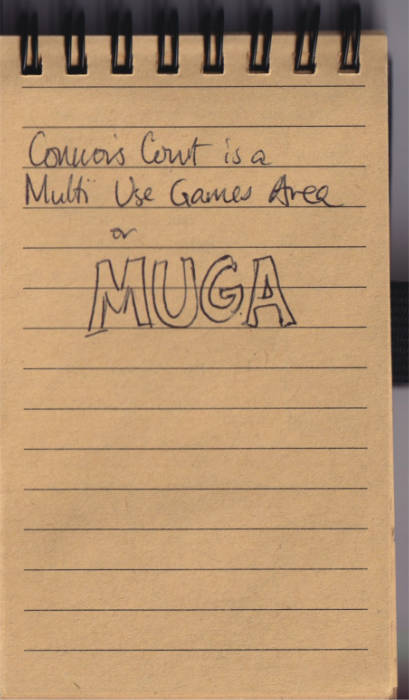 Connors Court is a
Multi Use Games Area
or
MUGA